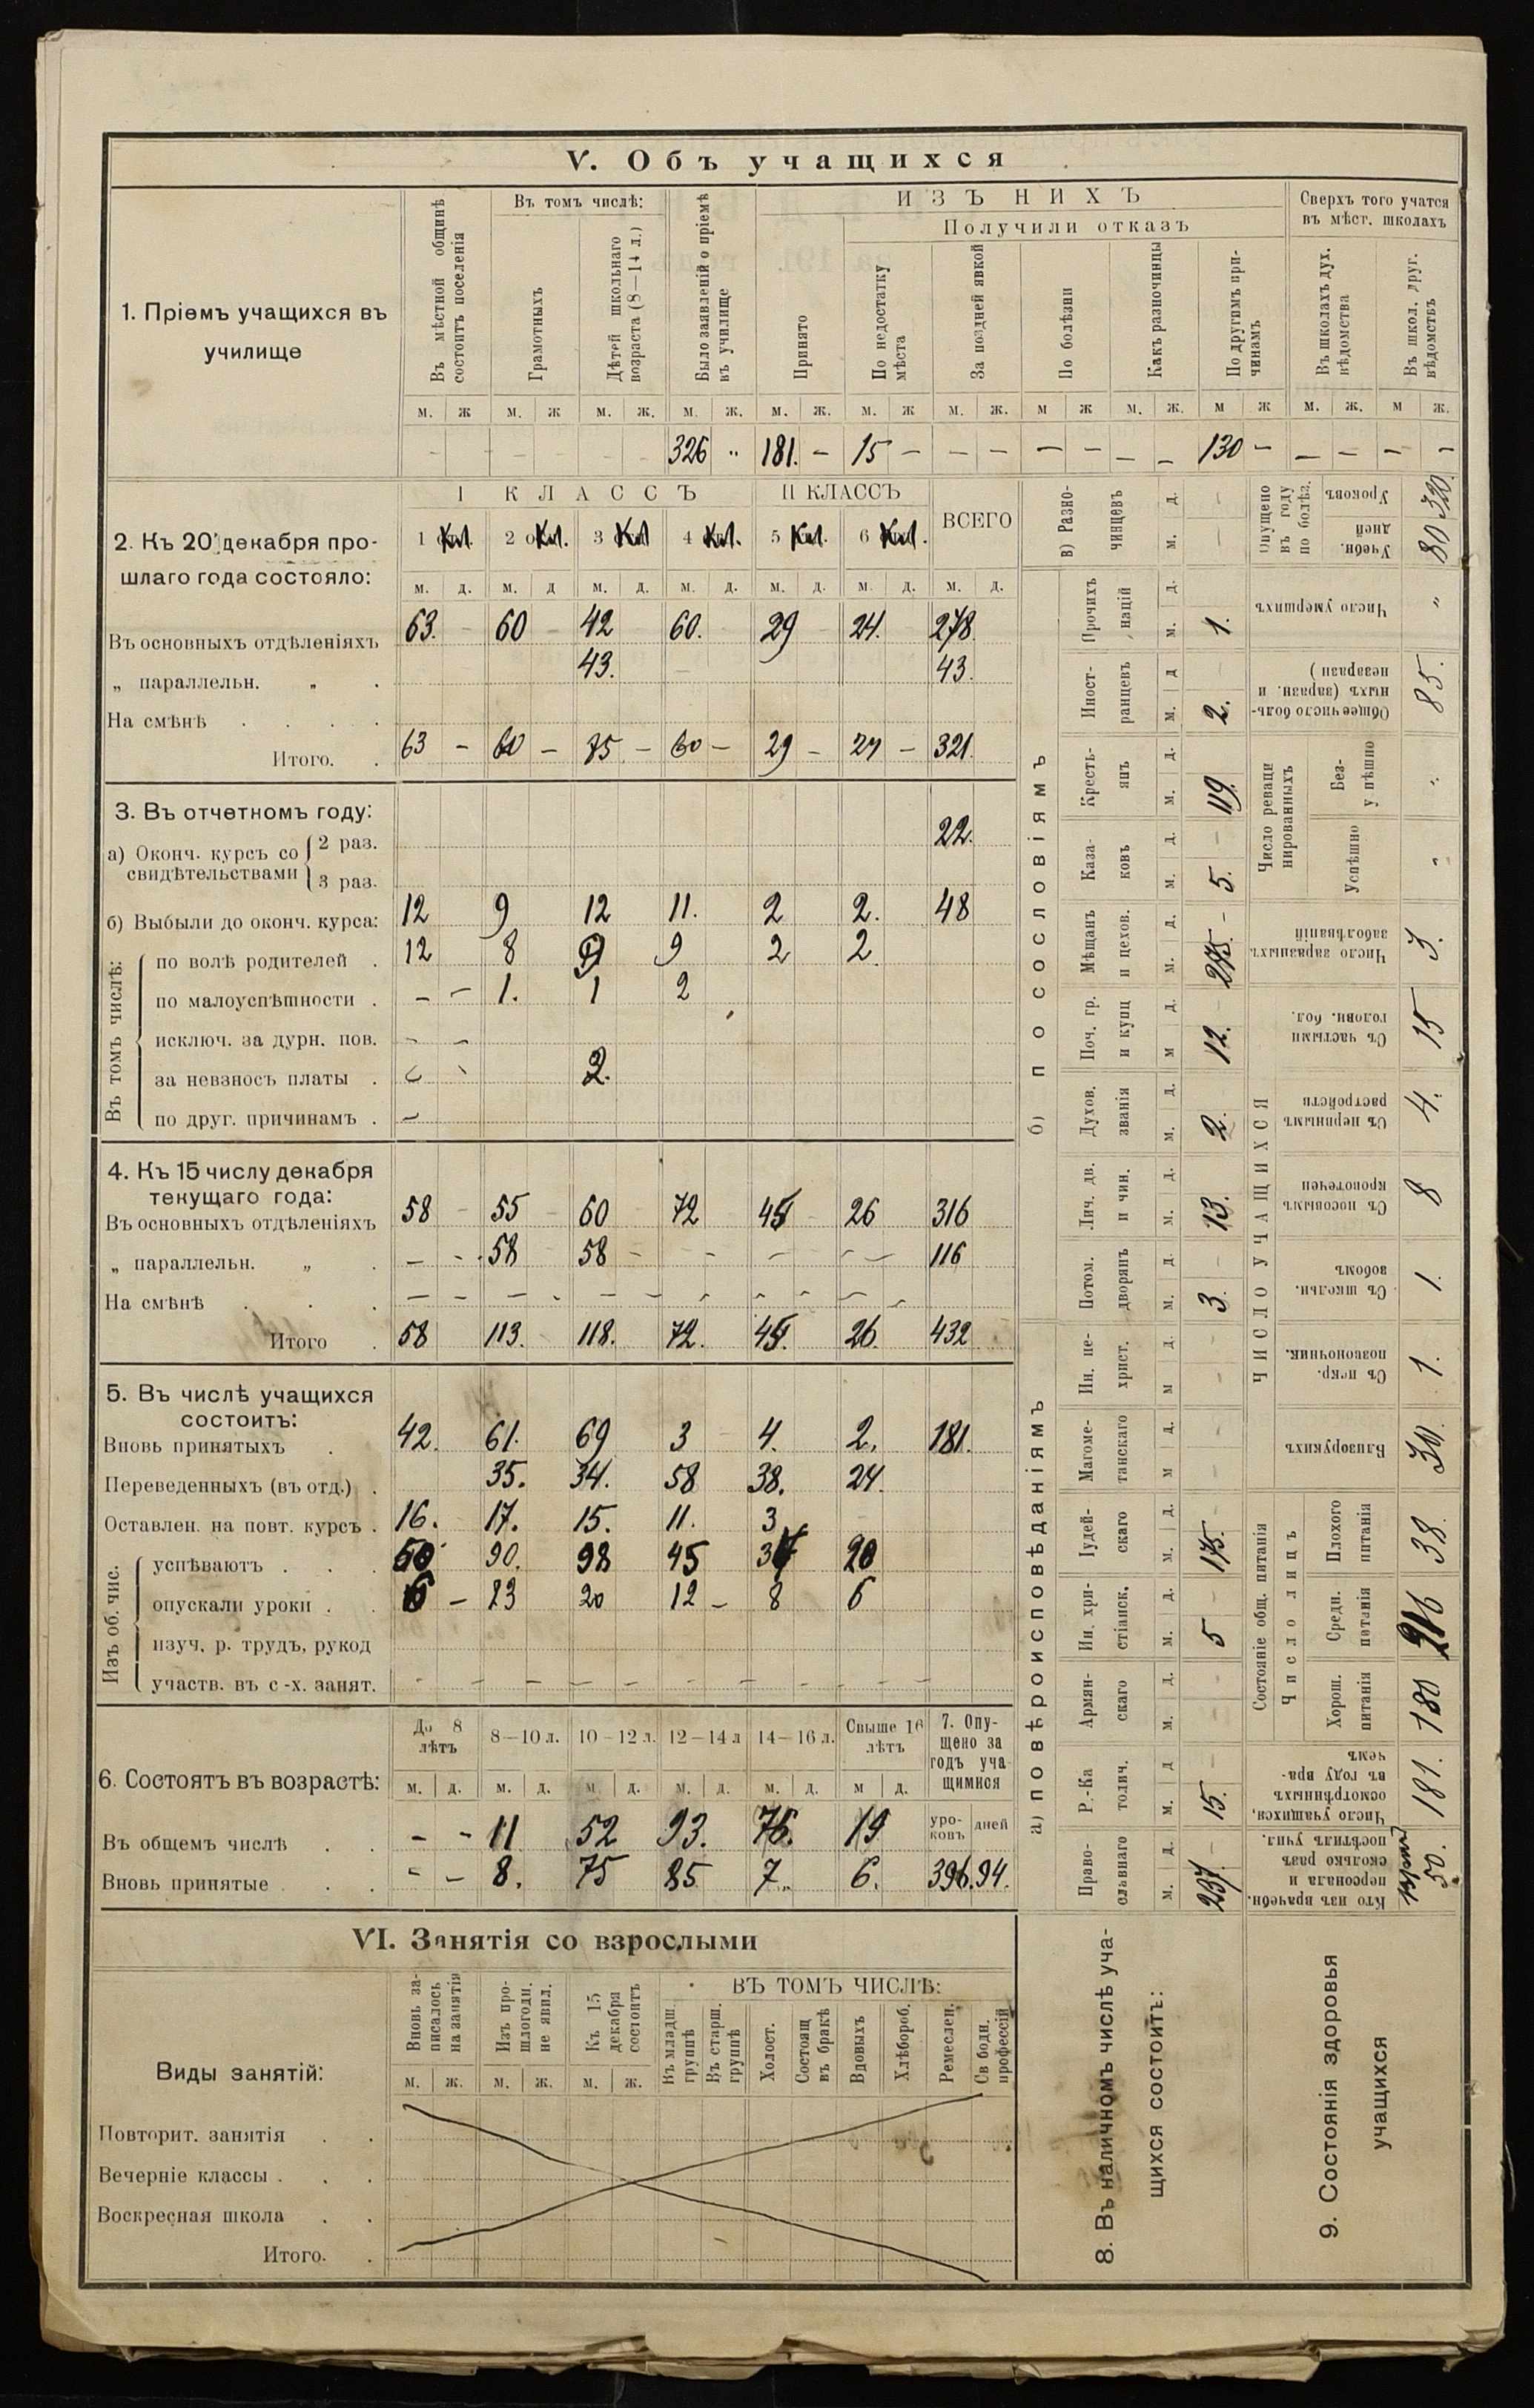 V. Объ учащихся
1. Пріемъ учащихся въ училище
Въ мѣстной общинѣ состоитъ поселенія
Въ томъ числѣ:
Грамотныхъ
Дѣтей школьнаго возраста (8—14 л.)
Было заявленій о пріемѣ въ училище
ИЗЪ НИХЪ
Принято
Получили отказъ
По недостатку мѣста
За поздней явкой
По болѣзни
Какъ разночинцы
По другимъ причинамъ
Сверхъ того учатся въ мѣст. школахъ
Въ школахъ дух. вѣдомства
Въ школ. друг. вѣдомствъ
м. ж м. ж м. ж. м. ж. м. ж. м. ж м. ж. м ж м. ж. м ж м. ж. м ж.
– – – – – – 326 „ 181. – 15 – – – – – – – 130 – – – – –
2. Къ 20 декабря прошлаго года состояло:
I КЛАССЪ II КЛАССЪ ВСЕГО
1 Кл. 2 Кл. 3 Кл. 4 Кл. 5 Кл. 6 Кл.
м. д. м. д м. д. м. д. м. д. м. д. м. д.
Въ основныхъ отдѣленіяхъ 63. – 60 – 42 60. – 29 24. 278.
„ параллельн. „ . 43. 43.
На смѣнѣ . . . .
Итого. . 63 – 60 – 85. – 60 – 29 – 24 – 321.
3. Въ отчетномъ году:
а) Оконч. курсъ со свидѣтельствами
2 раз. 22.
3 раз.
б) Выбыли до оконч. курса: 12 9 12 11. 2 2. 48
Въ томъ числѣ:
по волѣ родителей . 12 8 9 9 2 2
по малоуспѣшности . – – 1. 1 2
исключ. за дурн. пов. – –
за невзносъ платы . 2.
по друг. причинамъ . –
4. Къ 15 числу декабря текущаго года:
Въ основныхъ отдѣленіяхъ 58 – 55 – 60 72 45 – 26 316
„ параллельн. „ . – – 58 58 – – – – – – 116
На смѣнѣ . . . – – – – – – – – – – – –
Итого . 58 113. 118. 72. 45. 26. 432
5. Въ числѣ учащихся состоитъ:
Вновь принятыхъ . 42. 61. 69 3 4. 2. 181.
Переведенныхъ (въ отд.) . 35. 34. 58 38. 24.
Оставлен. на повт. курсъ . 16. 17. 15. 11. 3
Изъ об. чис.
успѣваютъ . . . 50 90. 98 45 37 20
опускали уроки . . 6 – 23 20 12 – 8 6
изуч. р. трудъ, рукод
участв. въ с-х. занят. – – – – – – – – – – –
6. Состоятъ въ возрастѣ:
До 8 лѣтъ 8—10 л. 10—12 л. 12—14 л 14—16 л. Свыше 16 лѣтъ
7. Опущено за годъ учащимися
м. д. м. д. м. д. м. д. м. д. м д.
уроковъ дней
Въ общемъ числѣ . . – – 11 52 93. 76. 19
Вновь принятые . . . – – 8. 75 85 7. 6. 396. 94.
VI. Занятія со взрослыми
Виды занятій:
Вновь записалось на занятія
Изъ прошлогодн. не явил.
Къ 15 декабря состоитъ
ВЪ ТОМЪ ЧИСЛѢ:
Въ младш. группѣ
Въ старш. группѣ
Холост.
Состоящ въ бракѣ
Вдовыхъ
Хлѣбороб.
Ремеслен.
Св бодн. профессій
м. ж. м. ж. м. ж.
Повторит. занятія . .
Вечерніе классы . . .
Воскресная школа . .
Итого. .
8. Въ наличномъ числѣ учащихся состоитъ:
а) по вѣроисповѣданіямъ
Православнаго м. д. 237. –
Р.-Католич. м. д 15. –
Армянскаго м. д. – –
Ин. христіанск. м. д. 5 –
Іудейскаго м. д. 175. –
Магометанскаго м д. – –
Ин. нехрист. м д. – –
б) по сословіямъ
Потом. дворянъ м. д. 3. –
Лич. дв. и чин. м. д. 13.
Духов. званія м. д. 2. –
Поч. гр. и купц м д. 12. –
Мѣщанъ и цехов. м. д. 275. –
Казаковъ м. д. 5. –
Крестьянъ м. д. 119.
Иностранцевъ м. д 2. –
Прочихъ націй м. д. 1.
в) Разночинцевъ м. д. – –
9. Состоянія здоровья учащихся
Кто изъ врачебн. персонала и сколько разъ посѣтилъ учил. Врачъ 50.
Число учащихся, осмотрѣнныхъ въ году врачемъ 181.
Состояніе общ. питанія
Число лицъ
Хорош. питанія 180
Средн. питанія 216
Плохого питанія 38.
ЧИСЛО УЧАЩИХСЯ
Близорукихъ 30.
Съ искр. позвоночник. 1.
Съ школьн. зобомъ 1.
Съ носовымъ кровотечен 8
Съ нервнымъ растройств 4.
Съ частыми головн. бол. 15
Число заразныхъ заболѣваній 3.
Число ревакцинированныхъ
Успѣшно „
Безуспѣшно „
Общее число больныхъ (заразн. и незаразн) 85.
Число умершихъ „
Опущено въ году по болѣз.
Учебн. дней 80
Уроковъ 320.